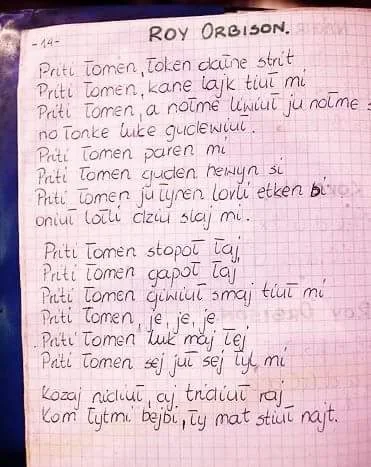 - 14 -
ROY ORBISON.
Priti łomen, łoken dałne strit
Priti łomen, kane łajk tiuł mi
Priti łomen, a nołme liwiuł ju nołme
no łonke luke gudewiuł.
Priti łomen paren mi
Priti łomen guden hewyn si
Priti łomen ju łynen lovli etken bi
oniuł łotli dziu slaj mi.
Priti łomen stopoł łaj
Priti łomen gapoł łaj
Priti łomen giwiuł smaj tiuł mi
Priti łomen, je, je, je
Priti łomen luk maj łej
Priti łomen sej juł sej łyl mi
Kozaj nidiuł, aj tridiuł raj
Kom łytmi bejbi, ły mat stiuł najt.